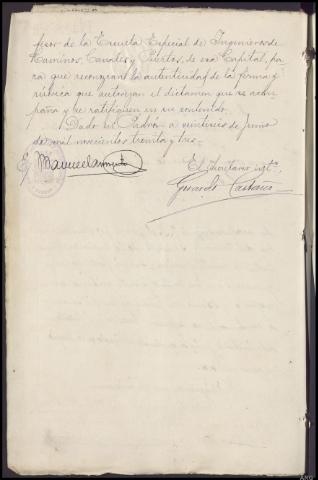 fesor de la Escuela Especial de Ingenieros de
Caminos, Canales y Puertos, de esa Capital, pa
ra que reconozcan la autenticidad de la firma y
rúbrica que autorizan el dictamen que se acom
paña y se ratifiquen en su contenido.
Dado en Padrón a veintiseis de Junio
de mil novecientos treinta y tres.
El Secretario intº.
Manuel
Gerardo Castaño